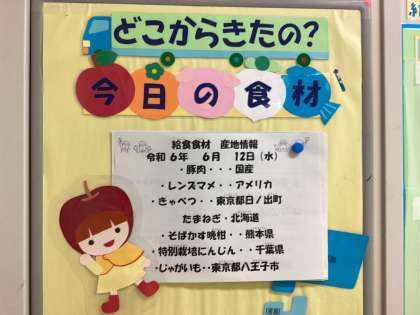 どこからきたの?
今日の食材
給食食材　産地情報
令和 6年　6月　12日(水)
・豚肉・・・国産
・レンズマメ・・アメリカ
・きゃべつ・・東京都日ノ出町
たまねぎ・北海道
・そばかす晩柑・・熊本県
・特別栽培にんじん・・千葉県
・じゃがいも・・東京都八王子市